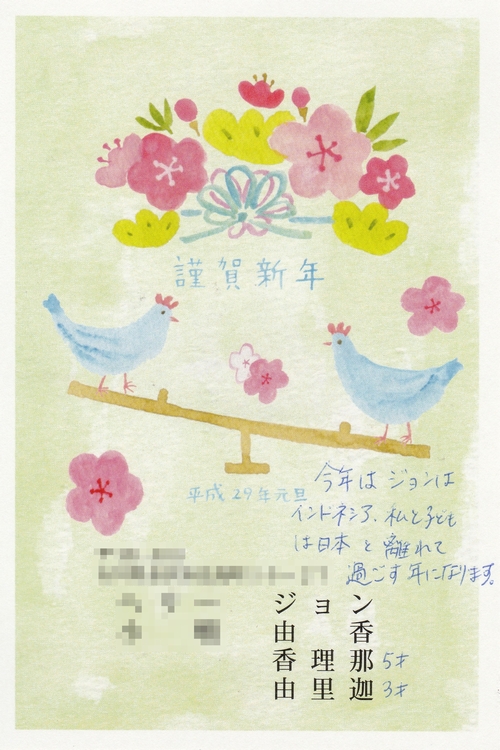 謹賀新年
平成29年元旦
今年はジョンは
インドネシア、私と子ども
は日本と離れて
過ごす年になります。
ジョン
由香
香理那 5才
由里迦 3才